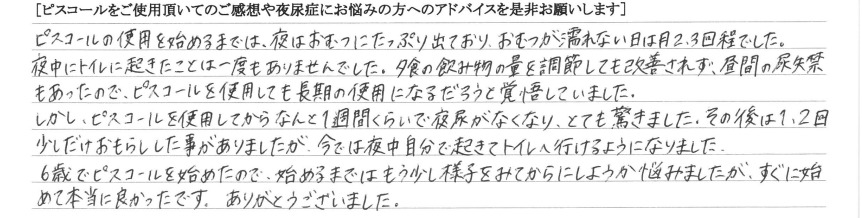 [ピスコールをご使用頂いてのご感想や夜尿症にお悩みの方へのアドバイスを是非お願いします]
ピスコールの使用を始めるまでは、夜はおむつにたっぷり出ており、おむつが濡れない日は月2.3回程でした。
夜中にトイレに起きたことは一度もありませんでした。夕食の飲み物の量を調節しても改善されず、昼間の尿失禁
もあったので、ピスコールを使用しても長期の使用になるだろうと覚悟していました。
しかし、ピスコールを使用してからなんと1週間くらいで夜尿がなくなり、とても驚きました。その後は1、2回
少しだけおもらしした事がありましたが、今では夜中自分で起きてトイレへ行けるようになりました。
6歳でピスコールを始めたので、始めるまではもう少し様子をみてからにしようか悩みましたが、すぐに始
めて本当に良かったです。ありがとうございました。